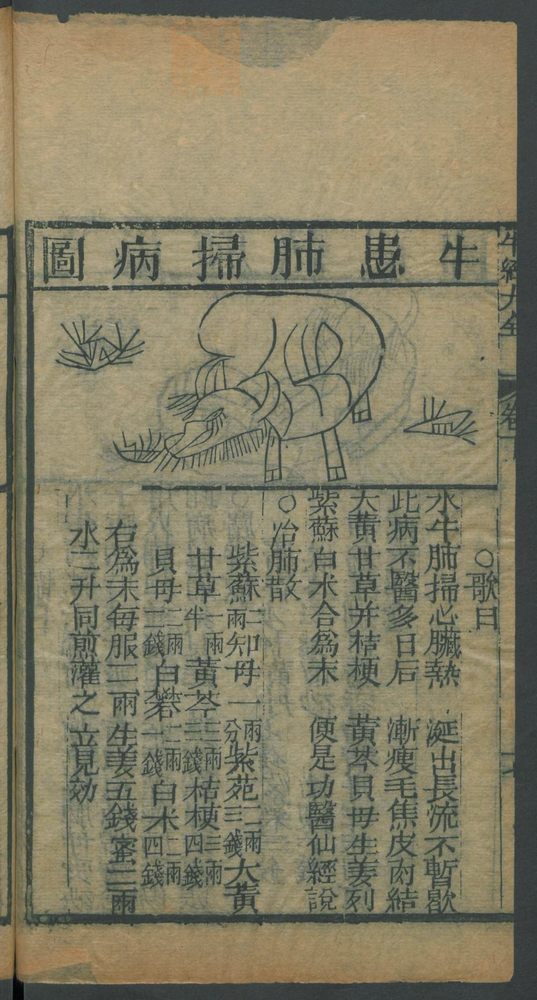 牛經大全
卷下
牛患肺掃病圖
○歌曰
水牛肺掃心臟熱 涎出長流不暫歇
此病不醫多日后 漸瘦毛焦皮肉結
大黃甘草并桔梗 黃芩貝母生姜列
紫蘇白水合爲末 便是功醫仙經說
○冶肺散
紫蘇二兩知母一兩一分紫苑二兩三錢大黃
甘草一兩半黃芩三兩三錢桔梗三兩四錢
貝母二兩二錢白礬二兩一錢白米二兩四錢
右爲末每服二兩生姜五錢蜜三兩
水二升同煎灌之立見効